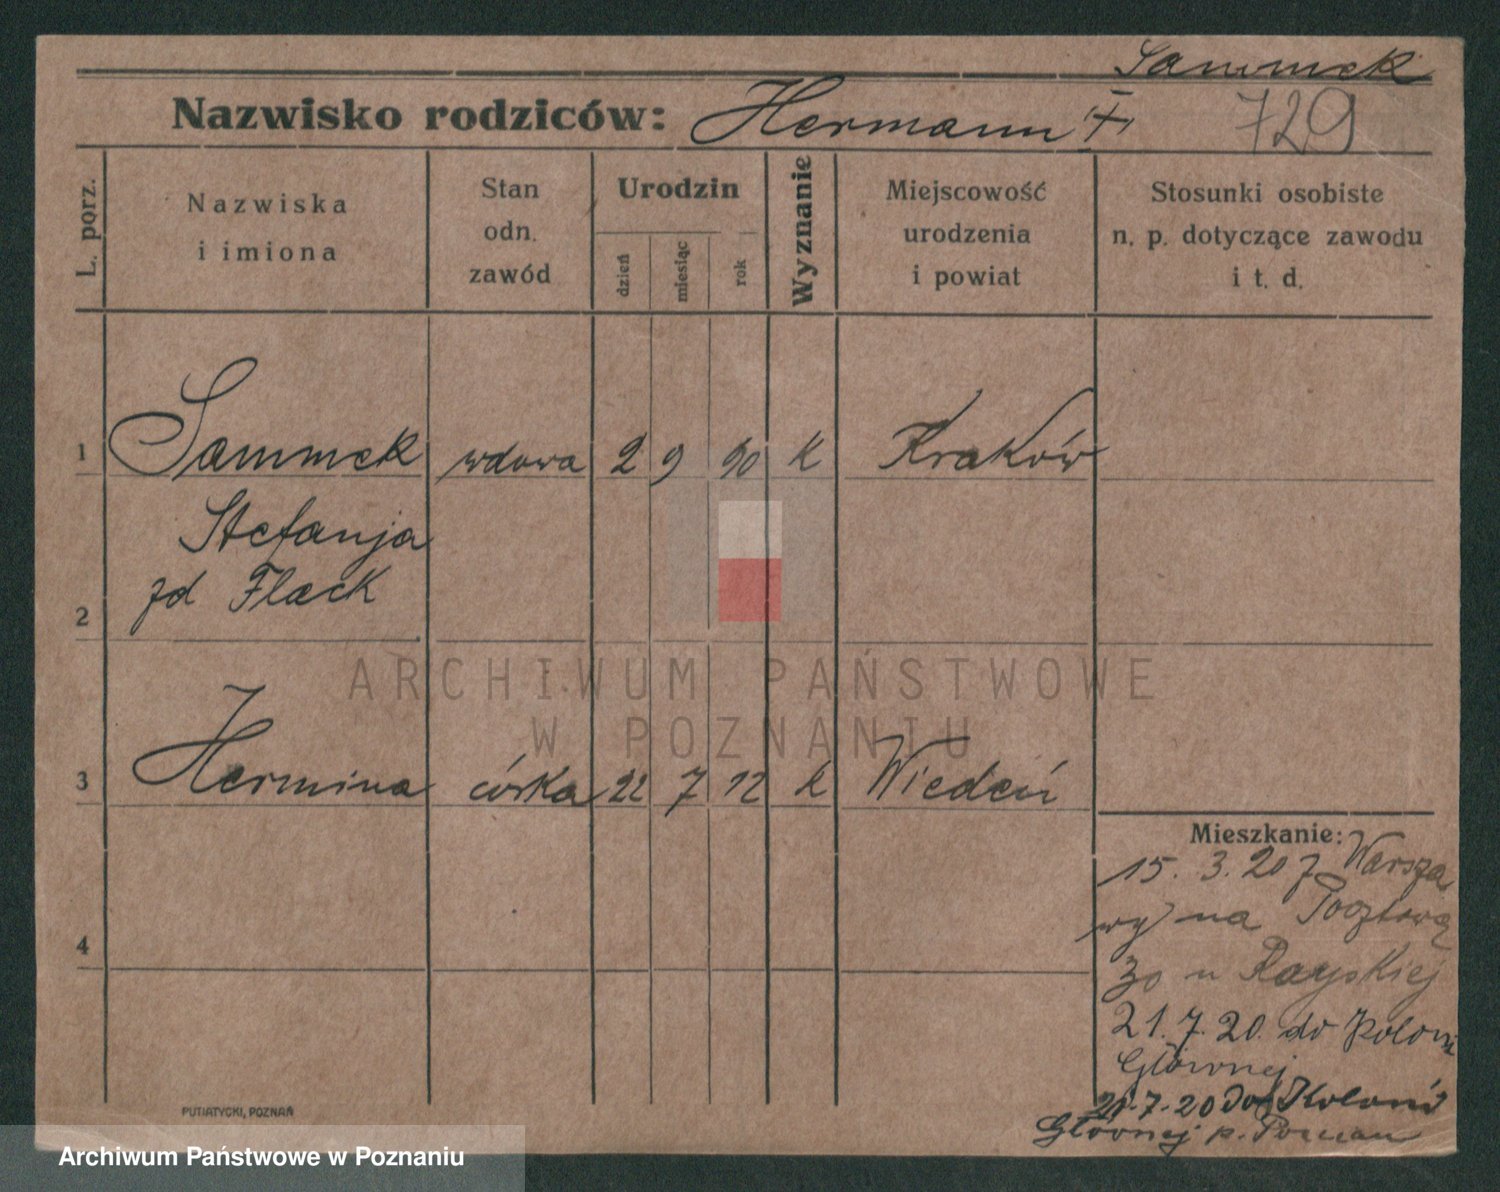 Sammek
Nazwisko rodziców: Hermann † 729
L. porz.
Nazwiska
i imiona
Stan
odn.
zawód
Urodzin
dzień
miesiąc
rok
Wyznanie
Miejscowość
urodzenia
i powiat
Stosunki osobiste
n. p. dotyczące zawodu
i t. d.
1 Sammek wdowa 2 9 90 k Kraków
Stefanja
2 zd Flack
3 Hermina córka 22 7 12 k Wiedeń
4
Mieszkanie:
15. 3. 20 z Warsza
wy na Pocztową
30 u Rayskiej
21. 7. 20. do Kolonii
Głównej
21-7-20 do Kolonii
Głównej p. Poznan
PUTIATYCKI, POZNAŃ
ARCHIWUM PAŃSTWOWE
W POZNANIU
Archiwum Państwowe w Poznaniu